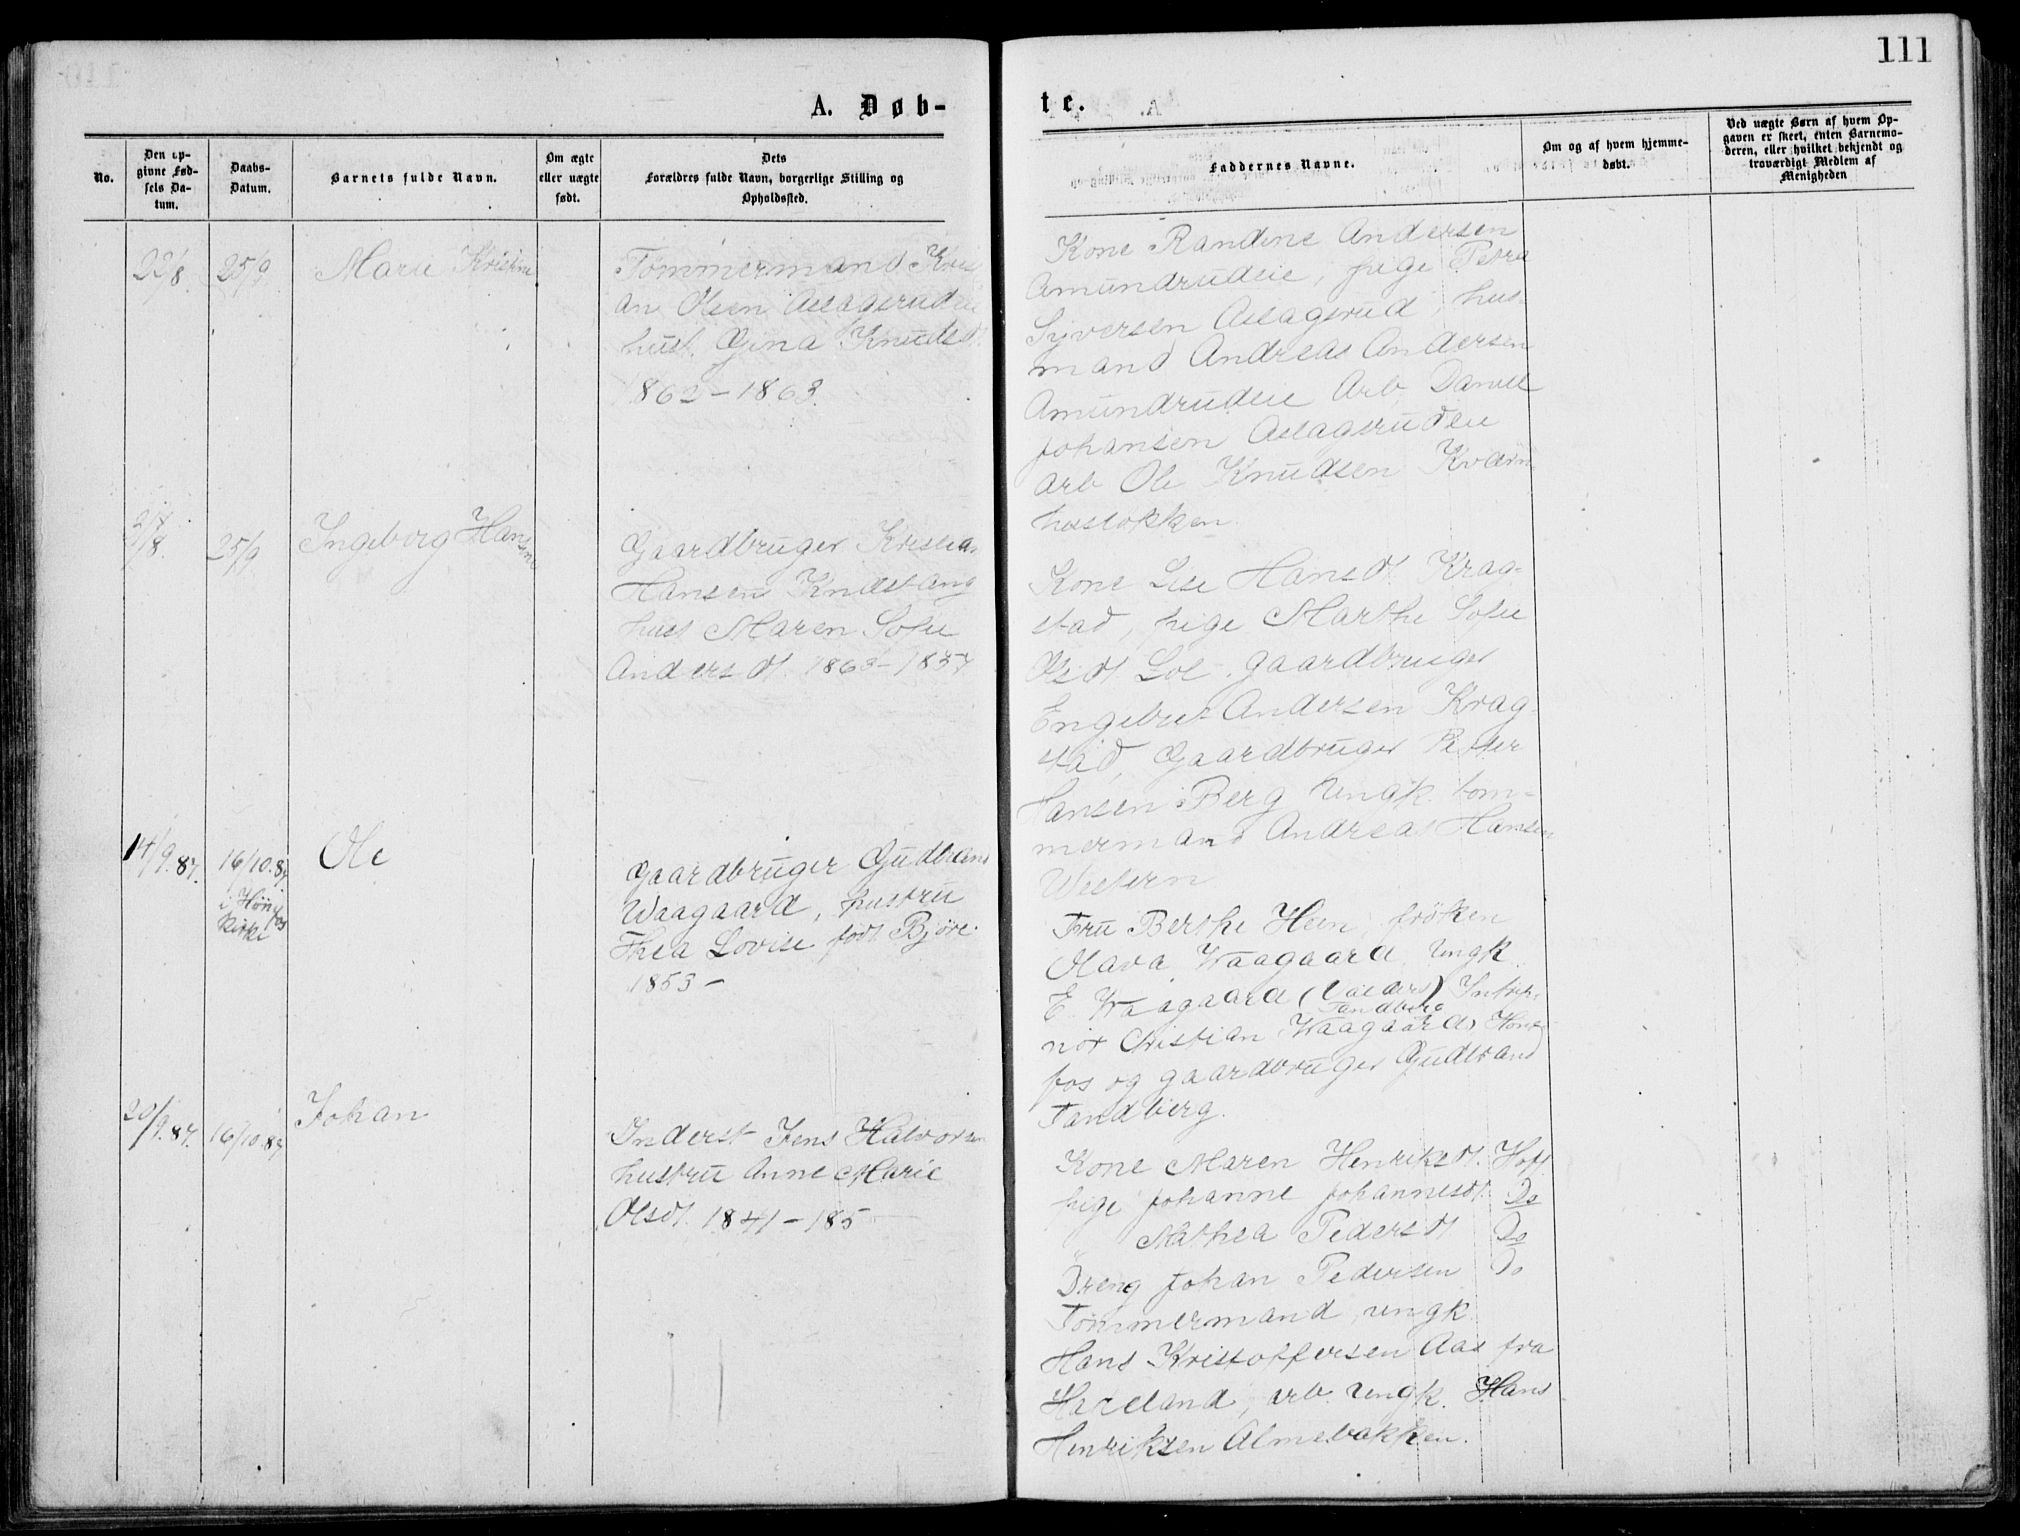 111
A. Døb-
te.
No.
Den op-
givne Fød-
sels Da-
tum.
Daabs-
Datum.
Barnets fulde Navn.
Om ægte
eller uægte
født.
Dets
Forældres fulde Navn, borgerlige Stilling og
Opholdssted.
Faddernes Navne.
Om og af hvem hjemme-
døbt.
Ved uægte Børn af hvem Op-
gaven er skeet, enten Barnemo-
deren, eller hvilket bekjendt og
troværdigt Medlem af
Menigheden
22/8.
25/9
Marie Kristine
Tømmermand
an Olsen Aslagsrudeie
hust. Gina Knudsdt.
1862-1863.
Kone Randine Andersen
Amundrudeie, pige Petra
Syversen Aslagsrud, hus-
mand Andreas Andersen
Amundrudeie Arb Daniel
Johansen Aslagsrudeie
arb Ole Knudsen Kværn
husløkken.
25/9
Ingeborg
Gaardbruger Kristian
Hansen Knæstang
hust Maren Sofie
Andersdt. 1863-1857
Kone Lise Hansdt. Krag-
stad, pige Marthe Sofie
Olsdt Loe. gaardbruger
Engebret Andersen Krag-
stad, Gaardbruger Petter
Hansen Berg Ungk. tøm-
mermand Andreas Hansen
Western
14/9.87.
16/10.87
i Høne
fos
Kirke
Ole
Gaardbruger Gudbrand
Waagaard, hustru
Thea Lovise født Bjøre.
1853-
Fru Berthe Hem, frøken
Olava Waagaard, Ungk.
E. Waagaard (Valders)
Tandberg
Christian Waagaard, Høne
fos og gaardbruger Gudbrand
Tandberg.
20/9.87.
16/10.87
Johan
Inderst Jens Halvorsen
hustru Anne Marie
Olsdt. 1841-185
Kone Maren Henriksdt. Hoff.
pige Johanne Johannesdt. Do
" Mathea Pedersdt Do
Dreng Johan Pedersen Do
Tømmermand, ungk
Hans Kristoffersen Aas fra
Hadeland, arb. ungk. Hans
Henriksen Almebakken.